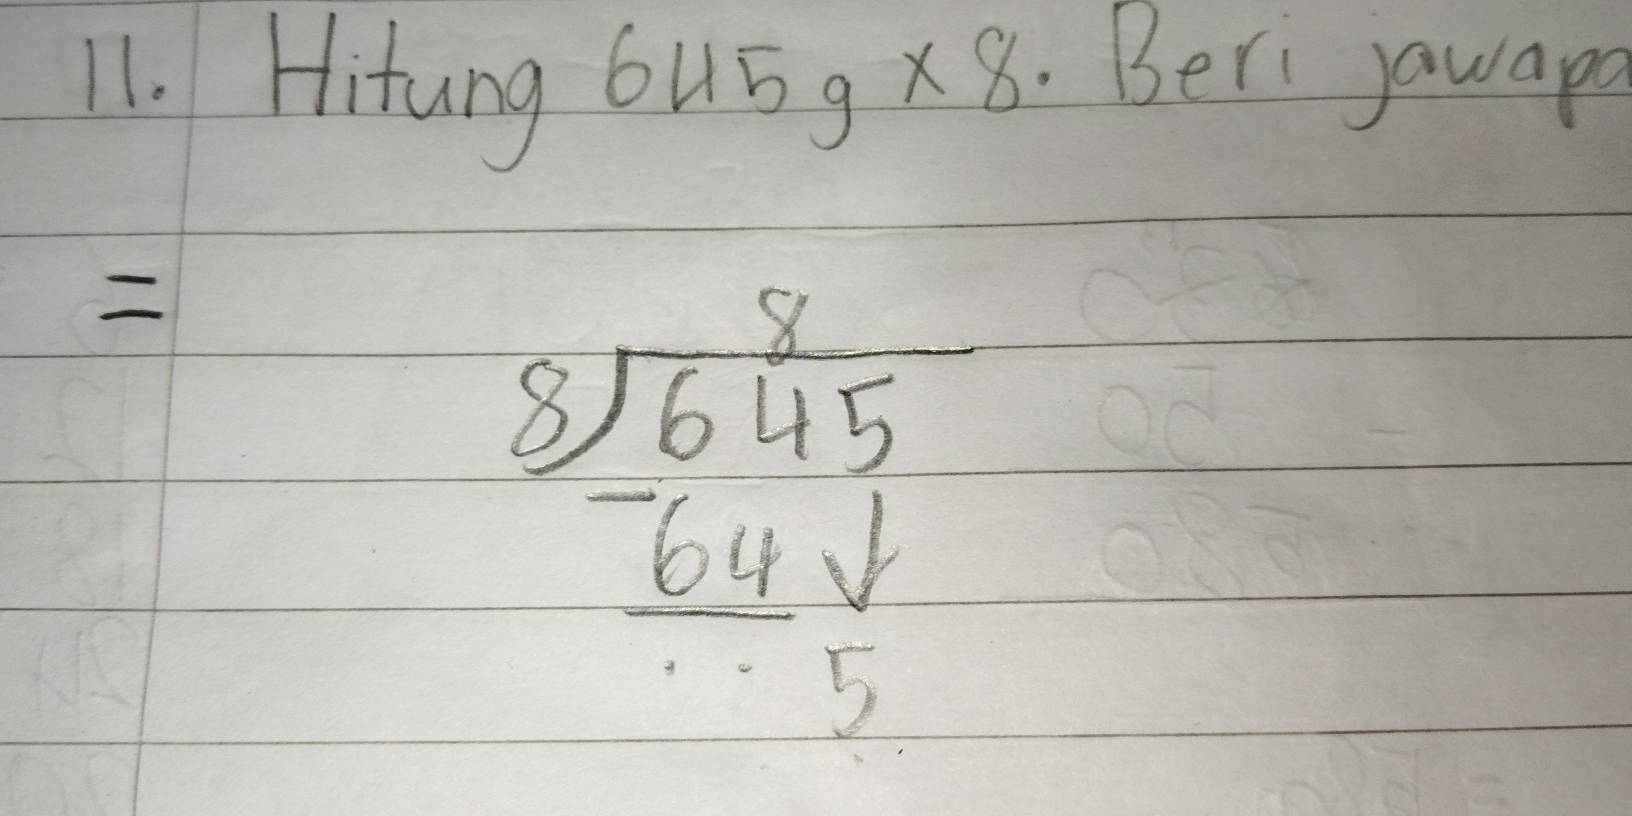 11. Hitung 645g × 8. Beri jawapa
=
8
8)645
- 64 ↓
. . 5